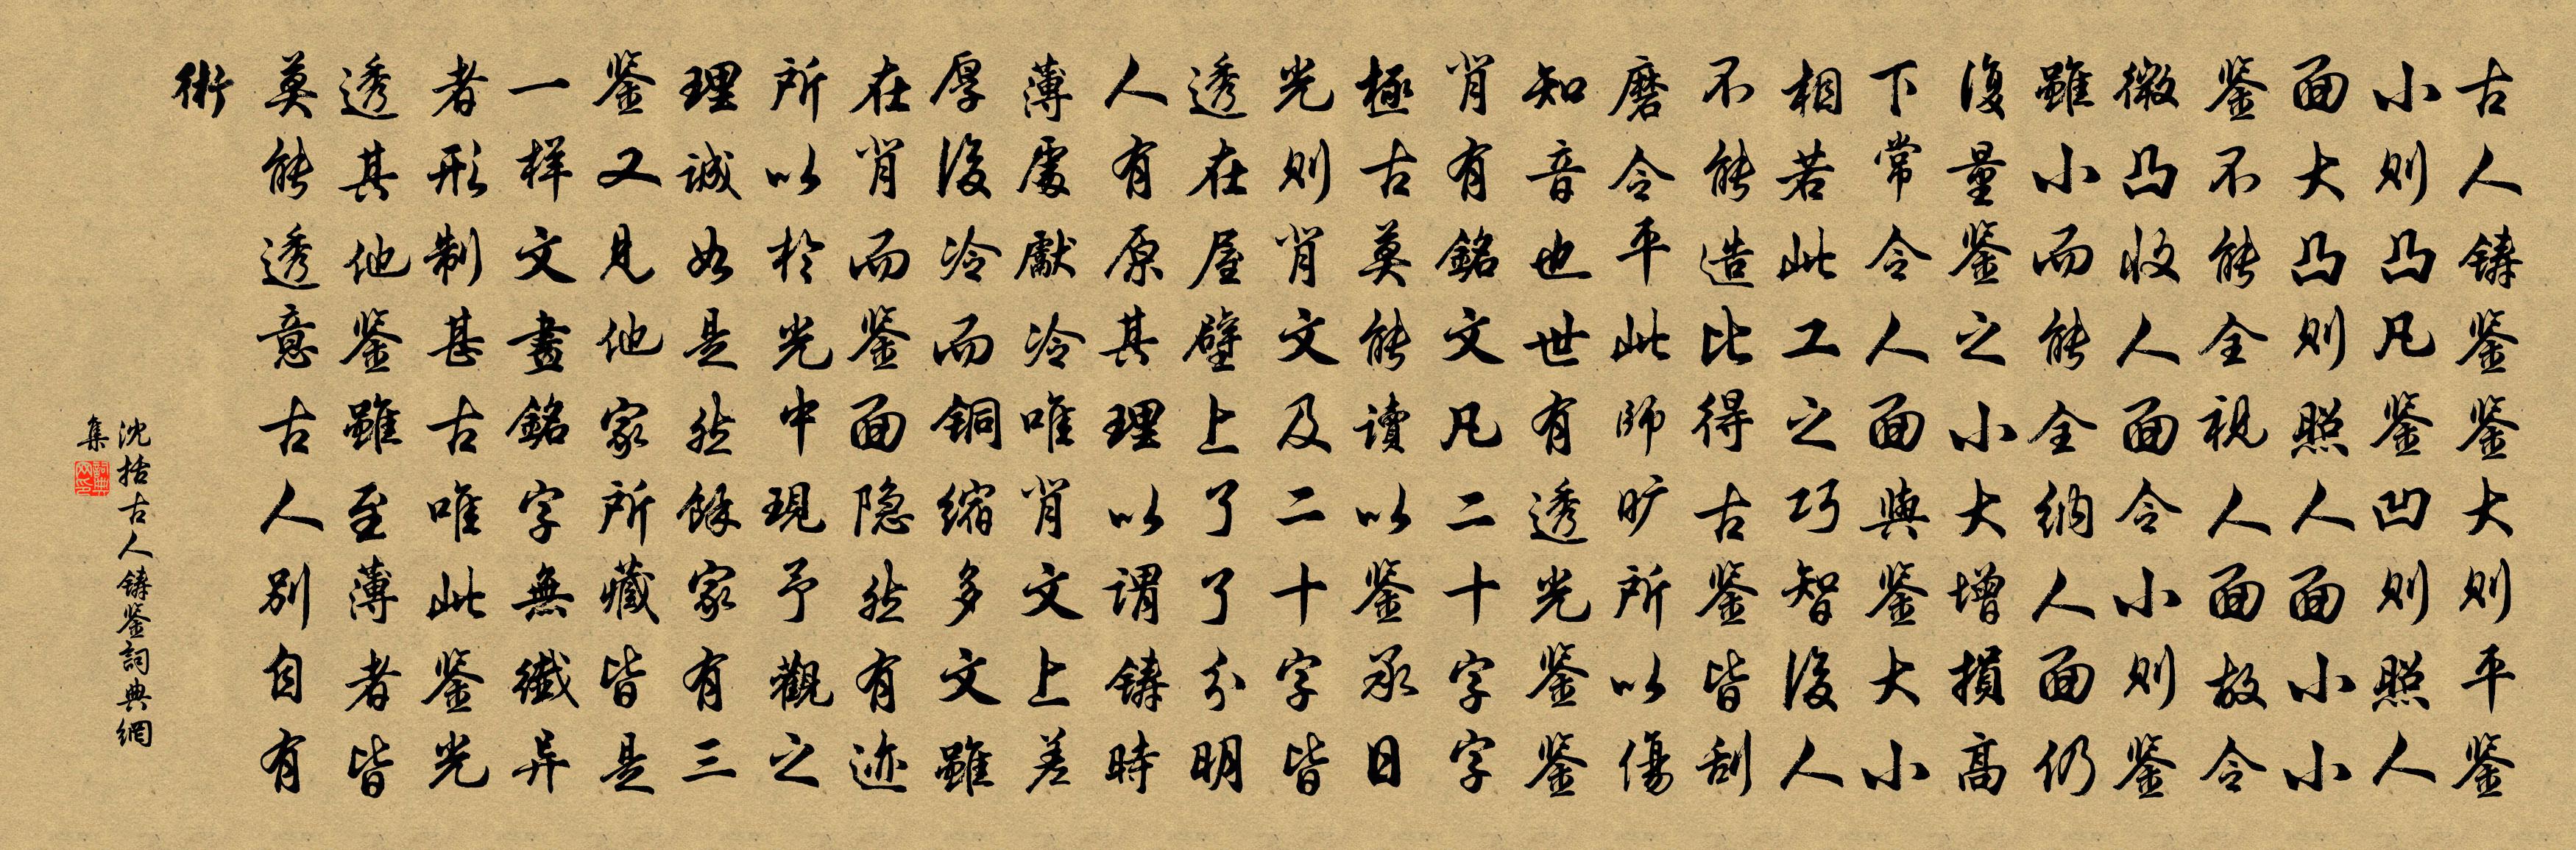 古人鑄鉴鉴大则平鉴
小则凸凡鉴凹则照人
面大凸则照人面小小
鉴不能全視人面故令
微凸收人面令小则鉴
雖小而能全纳人面仍
復量鉴之小大增損高
下常令人面與鉴大小
相若此工之巧智後人
不能造比得古鉴皆刮
磨令平此師旷所以傷
知音也世有透光鉴鉴
肖有銘文凡二十字字
極古莫能讀以鉴承日
光则肖文及二十字皆
透在屋壁上了了分明
人有原其理以谓鑄時
薄處獻冷唯肖文上差
厚後冷而铜缩多文雖
在肖而鉴面隐然有迹
所以於光中現予觀之
理誠如是然餘家有三
鉴又見他家所藏皆是
一样文畫銘字無纖异
者形制甚古唯此鉴光
透其他鉴雖至薄者皆
莫能透意古人别自有
術
沈括古人鑄鉴詞典網
集
詞典网印